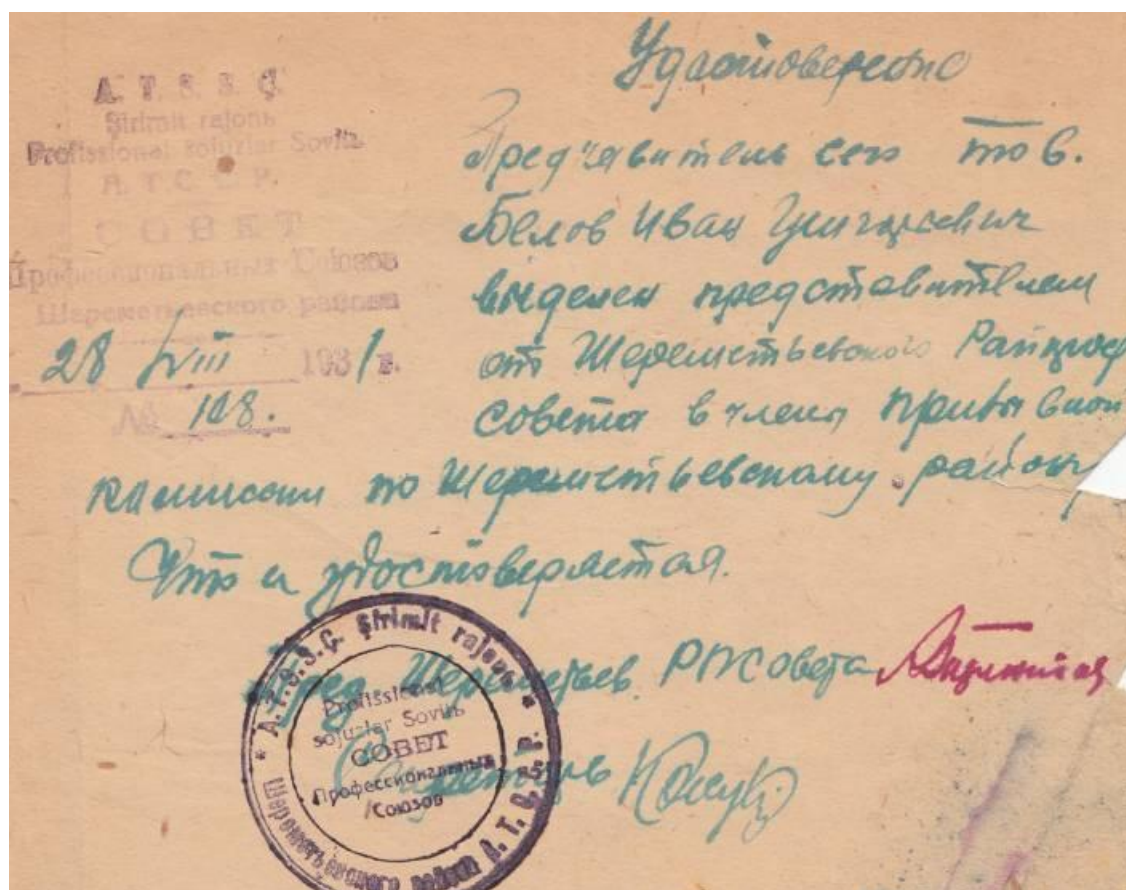 A. T. S. S. Ç.
Şirimit rajonь
Profissional sojuzlar Sovitь
А. Т. С. С. Р.
СОВЕТ
Профессиональных Союзов
Шереметьевского района
28/VIII 1931 г.
№ 108.
Удостоверение
Пред'явитель сего тов.
Белов Иван Григорьевич
выделен представителем
от Шереметьевского Райпроф
совета в члены призывной
комиссии по Шереметьевскому району
Что и удостоверяется.
Пред. Шереметьев. РПСовета
Секретарь
A.T.S.S.Ç. Şirimit rajonь
Profissional
sojuzlar Sovitь
СОВЕТ
Профессиональных
Союзов
Шереметьевского района А. Т. С. С. Р.